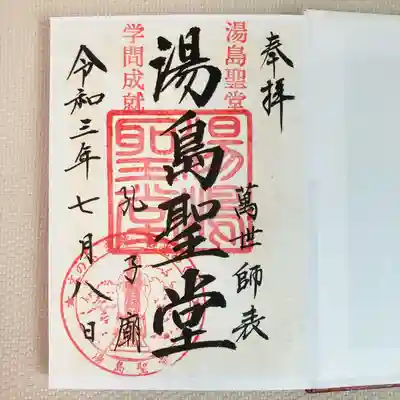 奉拝
萬世師表
湯島聖堂
湯島聖堂
孔子廟
学問成就
令和三年七月八日
湯島聖堂